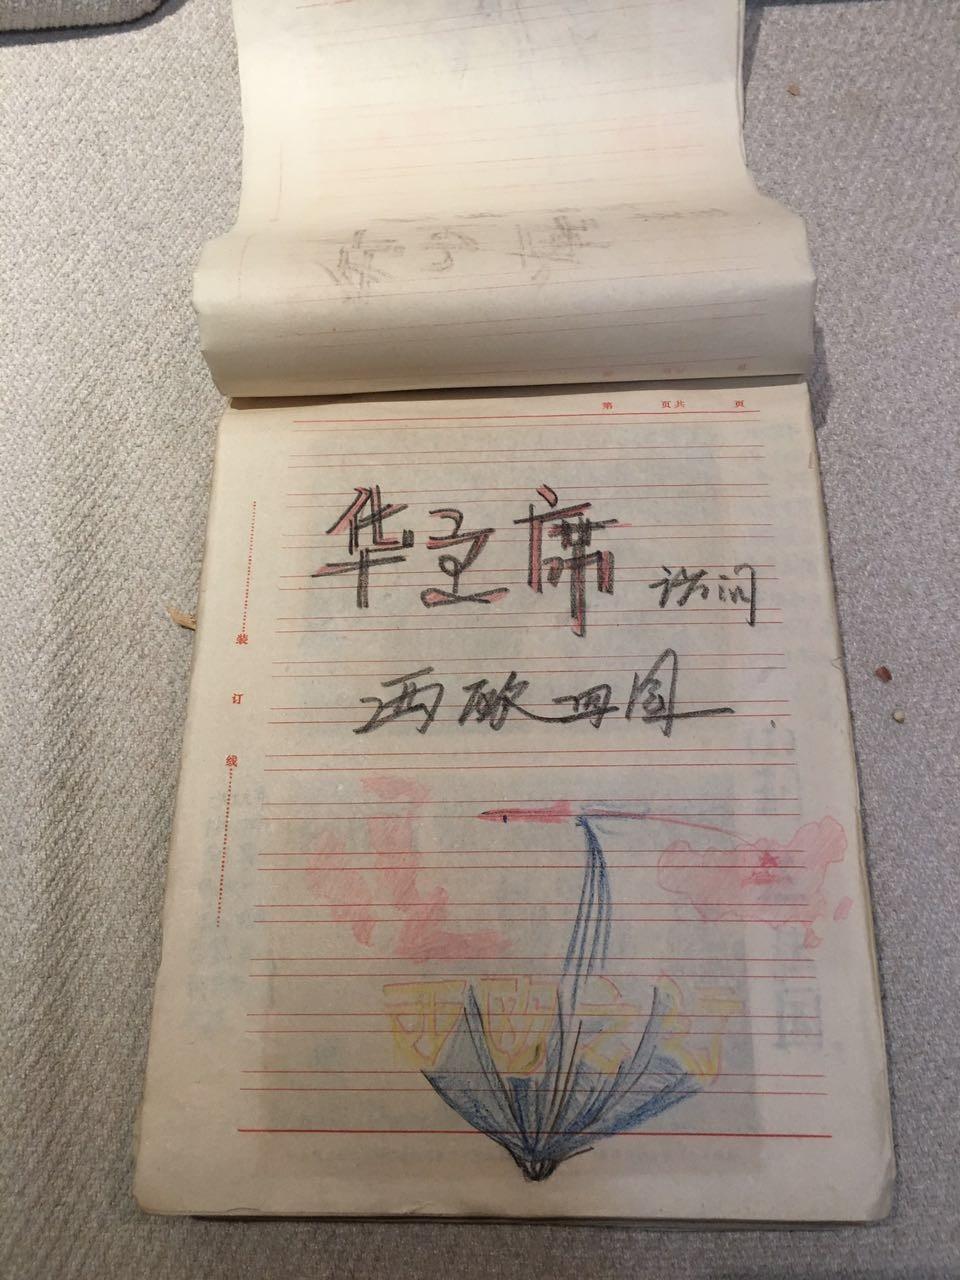 第 页共 页
华主席 访问
西欧四国
西欧之行
装
订
线